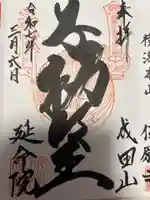 奉拝
横浜本山
成田山
不動堂
令和七年
三月六日
延命院